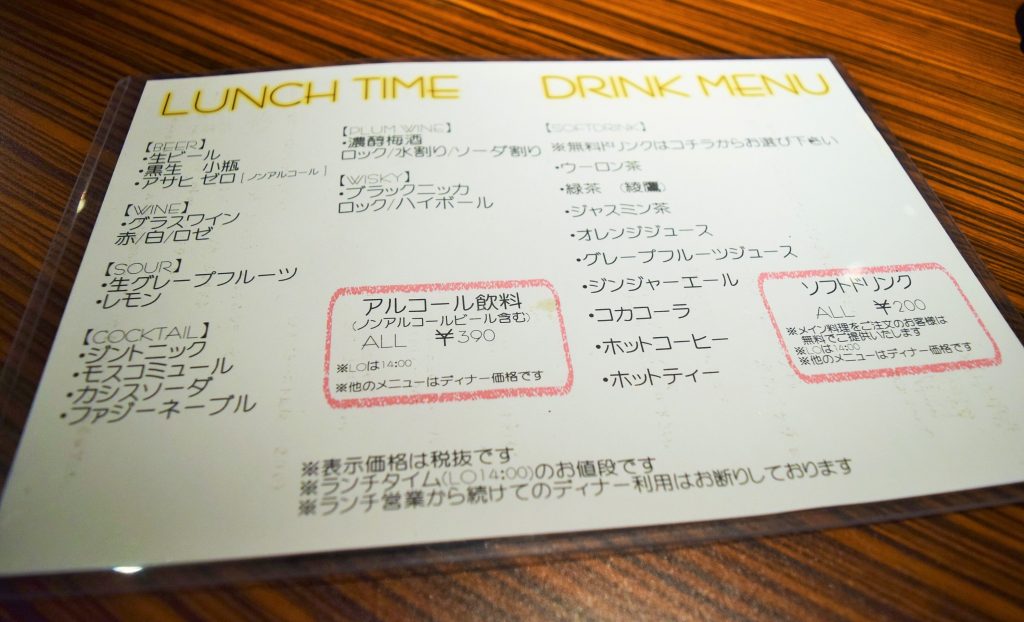 LUNCH TIME DRINK MENU
【BEER】
・生ビール
・黒生 小瓶
・アサヒ ゼロ[ノンアルコール]
【WINE】
・グラスワイン
赤/白/ロゼ
【SOUR】
・生グレープフルーツ
・レモン
【COCKTAIL】
・ジントニック
・モスコミュール
・カシスソーダ
・ファジーネーブル
【PLUM WINE】
・濃醇梅酒
ロック/水割り/ソーダ割り
【WISKY】
・ブラックニッカ
ロック/ハイボール
アルコール飲料
(ノンアルコールビール含む)
ALL ￥390
※LOは14:00
※他のメニューはディナー価格です
【SOFTDRINK】
※無料ドリンクはコチラからお選び下さい
・ウーロン茶
・緑茶 (綾鷹)
・ジャスミン茶
・オレンジジュース
・グレープフルーツジュース
・ジンジャーエール
・コカコーラ
・ホットコーヒー
・ホットティー
ソフトドリンク
ALL ￥200
※メイン料理をご注文のお客様は
無料でご提供いたします
※LOは14:00
※他のメニューはディナー価格です
※表示価格は税抜です
※ランチタイム(LO14:00)のお値段です
※ランチ営業から続けてのディナー利用はお断りしております